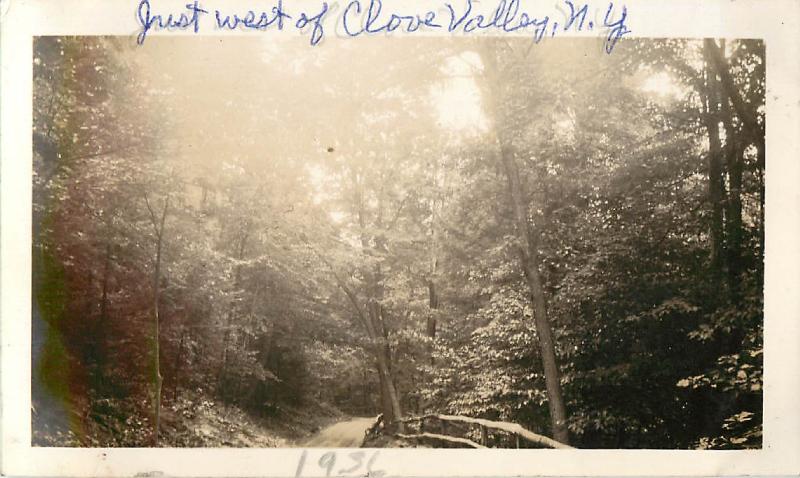 Just west of Clove Valley, N.Y
1936